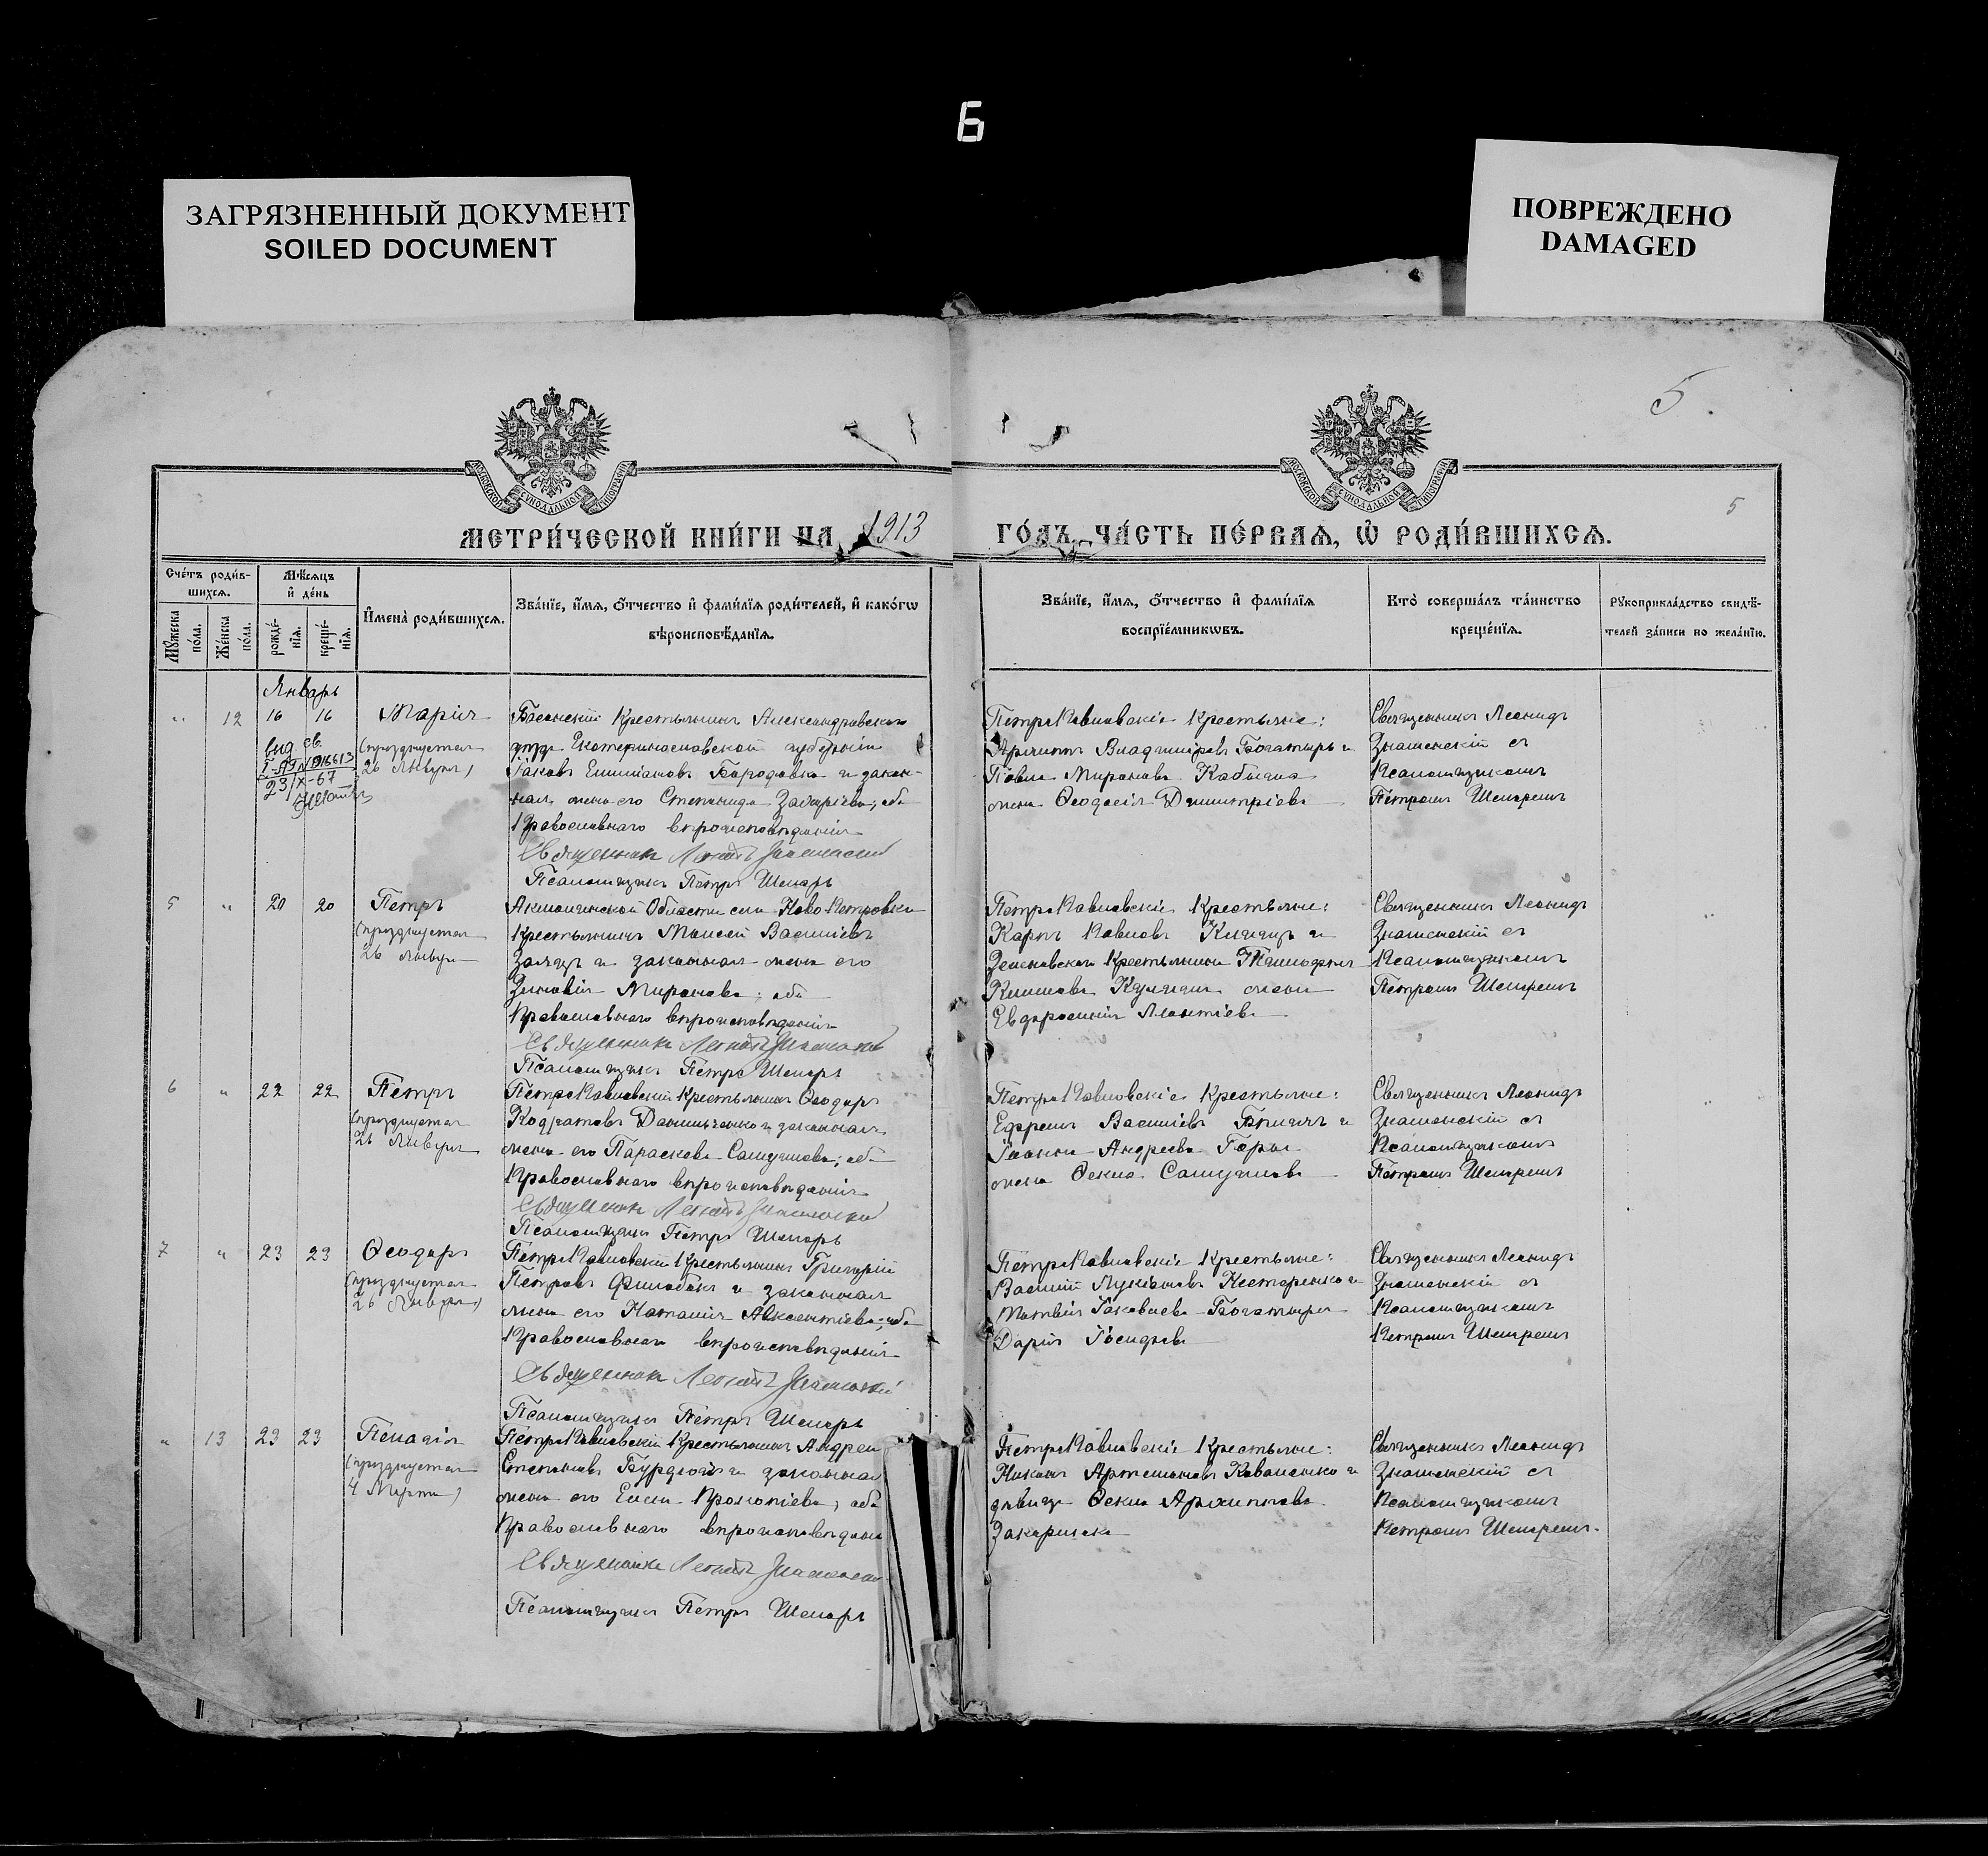 Б
ЗАГРЯЗНЕННЫЙ ДОКУМЕНТ
SOILED DOCUMENT
ПОВРЕЖДЕНО
DAMAGED
5.
5
МОСКОВСКОЙ СѴНОДАЛЬНОЙ ТИПОГРАФІИ
МОСКОВСКОЙ СѴНОДАЛЬНОЙ ТИПОГРАФІИ
МЕТРИ́ЧЕСКОЙ КНИ́ГИ НА 1913 ГО́ДЪ, ЧА́СТЬ ПЕ́РВАЯ, Ѡ҆ РОДИ́ВШИХСЯ.
Сче́тъ роди́в-
шихся.
Мꙋжеска по́ла.
Же́нска по́ла.
Мѣ́сяцъ
и҆ де́нь
рожде́-
нїя.
креще́-
нїя.
И҆мена̀ роди́вшихся.
Зва́нїе, и҆́мя, ѻ҆́тчество и҆ фами́лїя роди́телей, и҆ како́гѡ
вѣроисповѣ́данїя.
Зва́нїе, и҆́мя, ѻ҆́тчество и҆ фами́лїя
воспрїе́мникѡвъ.
Кто̀ соверша́лъ та́инство
креще́нїя.
Рꙋкоприкла́дство свидѣ́-
телей за́писи по жела́нїю.
Январь
" 12 16 16 Марія
(празднуетъя
26 Января)
23/X-67
Крестьянинъ Александровскаго
Екатеринославской губерніи
Іаковъ Бородавка и закон-
ная жена его Степанида Захаріева; оба
Православнаго вѣроисповѣданія
Священникъ Леонидъ Знаменскій
Псаломщикъ Петръ Шепарь
Петропавловскіе крестьяне:
Архипъ Владиміровъ Богатырь и
Павла Миронова Кабына
жена Ѳеодосія Димитріева
Священникъ Леонидъ
Знаменскій съ
Псаломщикомъ
Петромъ Шепаремъ
5 " 20 20 Петръ
(празднуетъя
26 Января
Акмолинской Области села Ново-Петровки
крестьянинъ Моисей Васильевъ
Заяцъ и законная жена его
Зиновія Миронова; оба
Православнаго вѣроисповѣданія
Священникъ Леонидъ Знаменскій
Псаломщикъ Петръ Шепарь
Петропавловскіе крестьяне:
Карпъ Павловъ и
крестьянина Тимофея
жена
Евфросинія Леонтіева
Священникъ Леонидъ
Знаменскій съ
Псаломщикомъ
Петромъ Шепаремъ
6 " 22 22 Петръ
(празднуетъя
26 Января
Петропавловскій крестьянинъ Ѳеодоръ
Кодратовъ Данильченко и законная
жена его Параскева Самуилова; оба
Православнаго вѣроисповѣданія
Священникъ Леонидъ Знаменскій
Псаломщикъ Петръ Шепарь
Петропавловскіе крестьяне:
Ефремъ Васильевъ и
Іоанна Андреева Горы
жена Ѳекла Самуилова
Священникъ Леонидъ
Знаменскій съ
Псаломщикомъ
Петромъ Шепаремъ
7 " 23 23 Ѳеодоръ
(празднуетъя
26 Января)
Петропавловскій крестьянинъ Григорій
Петровъ и законная
жена его Наталія Авксентіева; оба
Православнаго вѣроисповѣданія
Священникъ Леонидъ Знаменскій
Псаломщикъ Петръ Шепарь
Петропавловскіе крестьяне:
Василій Лукіановъ Нестеренко и
Матвія Іаковлева Богатыря
Дарія Іосифова
Священникъ Леонидъ
Знаменскій съ
Псаломщикомъ
Петромъ Шепаремъ
" 13 23 23 Пелагія
(празднуетъя
4 Марта)
Петропавловскій крестьянинъ Андрей
Степановъ и законная
жена его Елена Прокопіева, оба
Православнаго вѣроисповѣдані
Священникъ Леонидъ Знаменскій
Псаломщикъ Петръ Шепарь
Петропавловскіе крестьяне:
Никонъ Артемоновъ Коваленко и
дѣвица Ѳекла Архиппова
Священникъ Леонидъ
Знаменскій съ
Псаломщикомъ
Петромъ Шепаремъ.